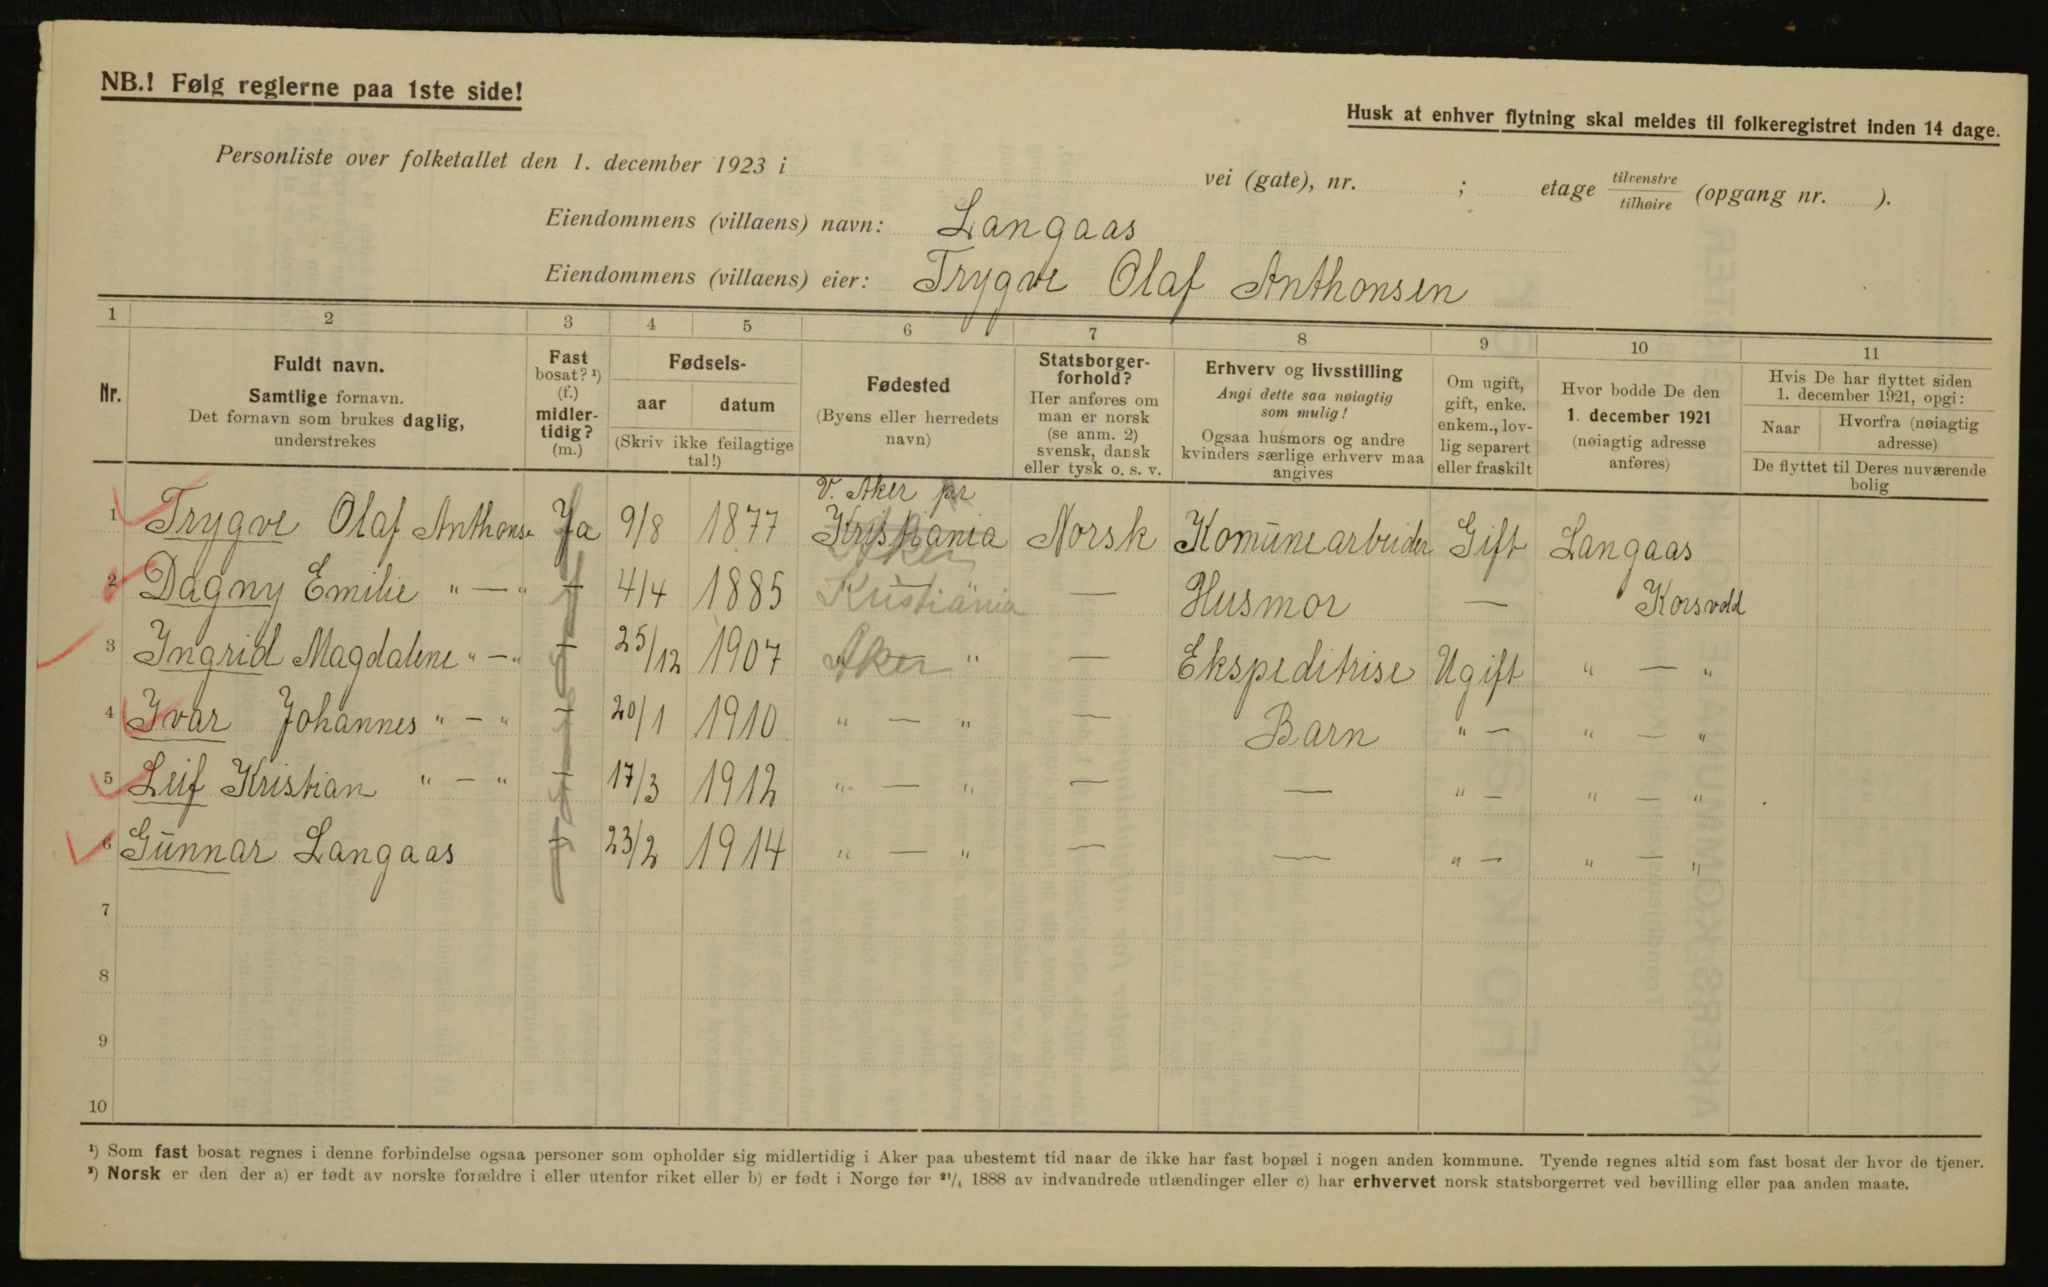 NB.! Følg reglerne paa 1ste side!
Husk at enhver flytning skal meldes til folkeregistret inden 14 dage.
Personliste over folketallet den 1. december 1923 i vei (gate), nr. ; etage tilvenstre tilhøire (opgang nr. ).
Eiendommens (villaens) navn: Langaas
Eiendommens (villaens) eier: Trygve Olaf Anthonsen
1 2 3 4 5 6 7 8 9 10 11
Nr.
Fuldt navn.
Samtlige fornavn.
Det fornavn som brukes daglig,
understrekes
Fast
bosat? ¹)
(f.)
midler-
tidig?
(m.)
Fødsels-
aar datum
(Skriv ikke feilagtige
tal!)
Fødested
(Byens eller herredets
navn)
Statsborger-
forhold?
Her anføres om
man er norsk
(se anm. 2)
svensk, dansk
eller tysk o. s. v.
Erhverv og livsstilling
Angi dette saa nøiagtig
som mulig!
Ogsaa husmors og andre
kvinders særlige erhverv maa
angives
Om ugift,
gift, enke.
enkem., lov-
lig separert
eller fraskilt
Hvor bodde De den
1. december 1921
(nøiagtig adresse
anføres)
Hvis De har flyttet siden
1. december 1921, opgi:
Naar
Hvorfra (nøiagtig
adresse)
De flyttet til Deres nuværende
bolig
V. Aker pr
1 Trygve Olaf Anthonse Ja 9/8 1877 Kristiania Norsk Komunearbeider Gift Langaas
Aker
2 Dagny Emilie " — " — 4/4 1885 Kristiania — Husmor — Korsvold
3 Ingrid Magdalene " — " — 25/12 1907 Aker " — Ekspeditrise Ugift " — "
4 Ivar Johannes " — " — 20/1 1910 " — " — Barn " — " — "
5 Leif Kristian " — " — 17/3 1912 " — " — — " — " — "
6 Gunnar Langaas — 23/2 1914 " — " — — " — " — "
7
8
9
10
¹) Som fast bosat regnes i denne forbindelse ogsaa personer som opholder sig midlertidig i Aker paa ubestemt tid naar de ikke har fast bopæl i nogen anden kommune. Tyende regnes altid som fast bosat der hvor de tjener.
²) Norsk er den der a) er født av norske forældre i eller utenfor riket eller b) er født i Norge før ²¹/₄ 1888 av indvandrede utlændinger eller c) har erhvervet norsk statsborgerret ved bevilling eller paa anden maate.